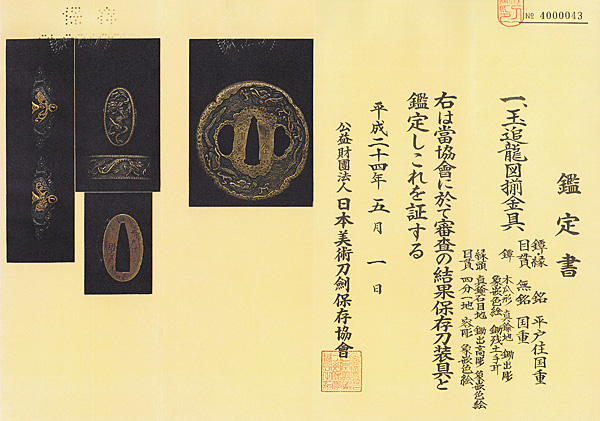 保存
№ 4000043
鑑定書
一、玉追龍図揃金具
鐔縁 銘 平戸住国重
目貫 無銘 国重
鐔 木瓜形 真鍮地 鋤出彫
象嵌色絵 鋤残土手耳
縁頭 真鍮石目地 鋤出高彫 象嵌色絵
目貫 四分一地 容彫 象嵌色絵
右は當協會に於て審査の結果保存刀装具と
鑑定しこれを証する
平成二十四年五月一日
公益財團法人 日本美術刀劍保存協會